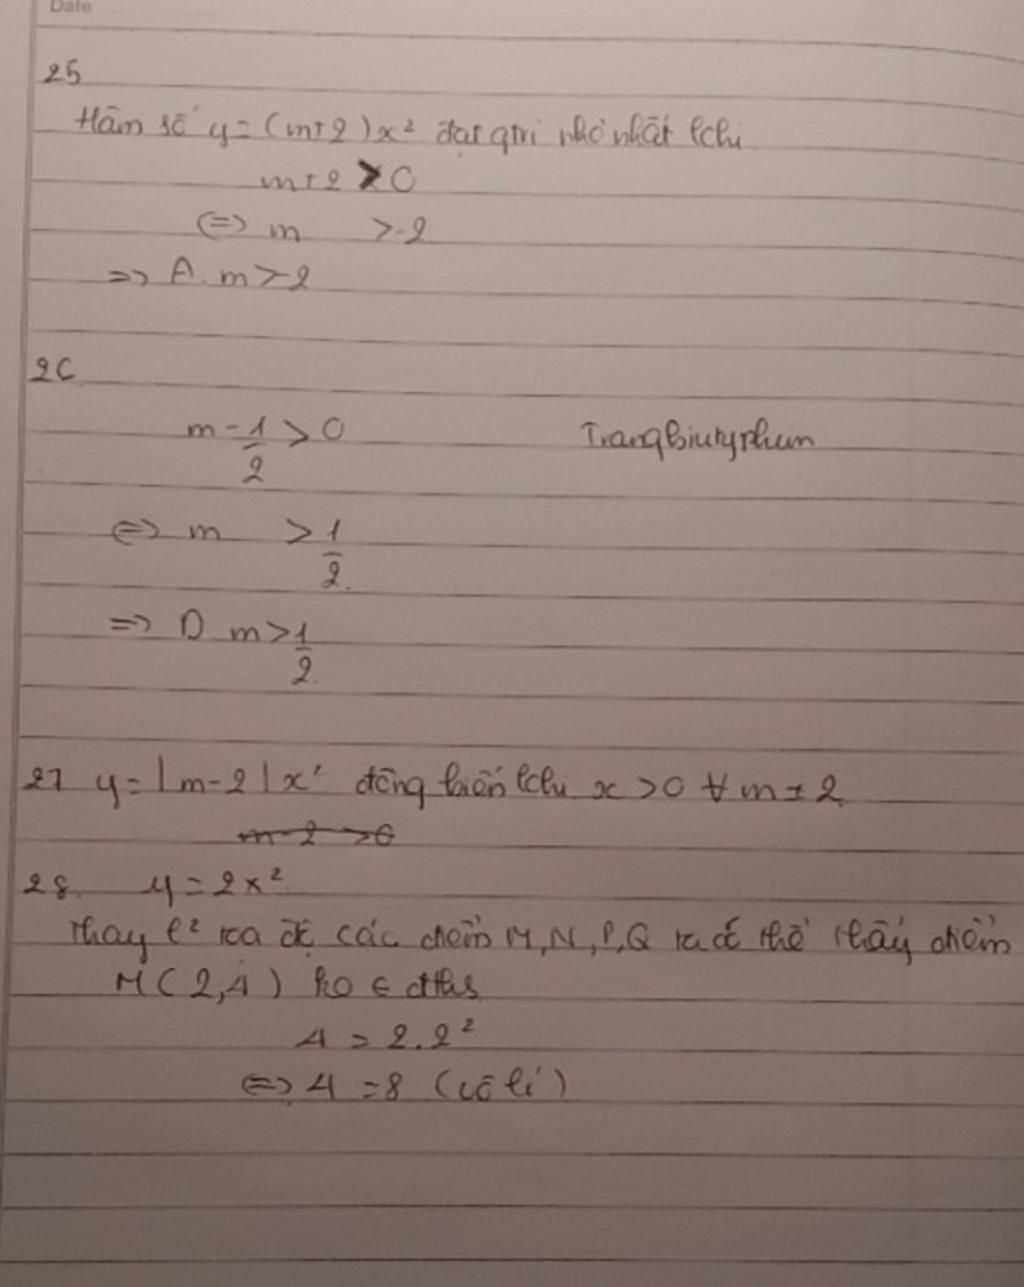 Date
25
Hàm số y = (m+2)x² đạt gtri nhỏ nhất khi
m+2 > 0
<=> m > -2
=> A. m > -2
26
m - 1/2 > 0
Trangbiutyphun
<=> m > 1/2
=> D m > 1/2
27 y = |m-2|x² đồng biến khi x > 0 ∀ m ± 2
m-2 > 0
28. y = 2x²
Thay lần toạ độ các điểm M, N, P, Q ta có thể thấy điểm
M(2,4) ko ∈ đths
4 = 2.2²
<=> 4 = 8 (vô lí)